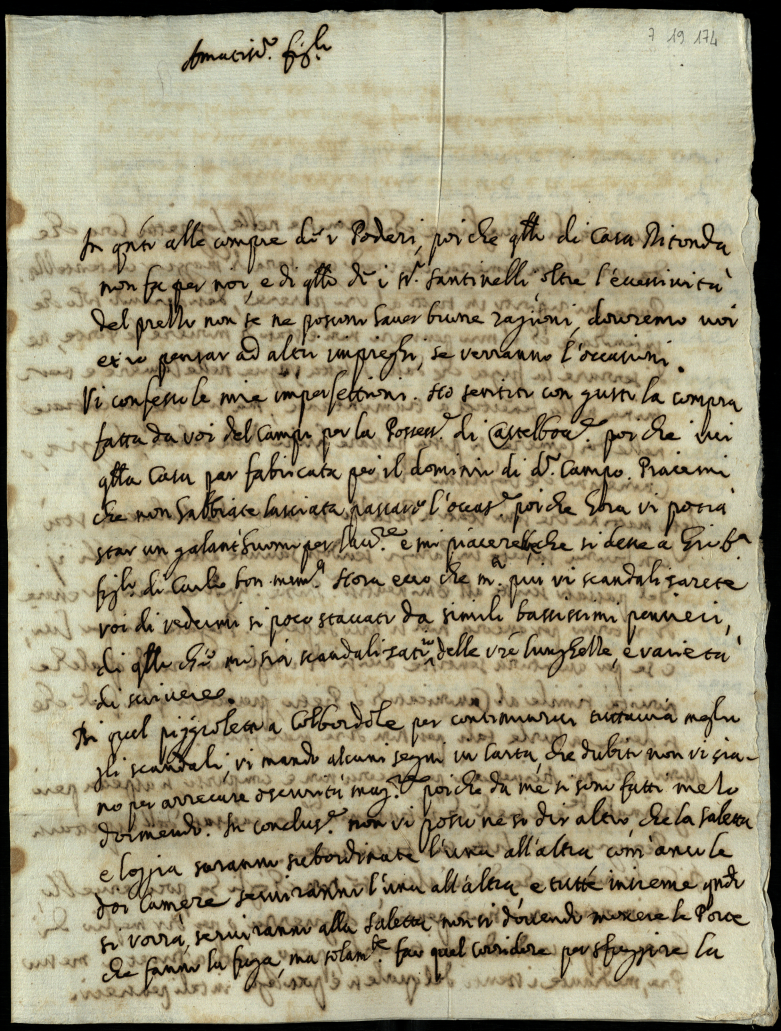 7 19 174
Amatiss.o figlo
In qnto alle compre di i Poderi, poi che qllo di Casa Ritonda
non fa per noi, e di qllo di i Sri Santinelli oltre l'eccessività
del prezzo non se ne possono haver buone ragioni, dovremo voi
et io pensar ad altri impieghi, se verranno l'occasioni.
Vi confesso le mie imperfettioni. Ho sentito con gusto la compra
fatta da voi del Campo per la Possess.e di Castelboc.e poi che ivi
qlla Casa par fabricata per il dominio di d.o Campo. Piacemi
che non habbiate lasciata passare l'occas.e poi che hora vi potrà
star un galant'huomo per lav.re e mi piacerebbe che si desse a
figlo di Carlo bon. mem.a Hora ecco che m.o più vi scandalizarete
voi di vedermi sì poco staccato da simili bassissimi pensieri,
di qllo ch'io mi sia scandalizato delle vre lunghezze, e varietà
di scrivere.
Di quel pizzicoletto a Colbordole per continuarvi tuttavia meglio
gli scandali, vi mando alcuni segni in carta, che dubito non vi sia-
no per arrecare oscurità magg.re poi che da me si sono fatti mezo
dormendo. In conclus.e non vi posso ne so dir altro che la saletta
e loggia saranno subordinate l'una all'altra com'anco le
doi Camere serviranno l'una all'altra e tutte insieme qndo
si vorrà, serviranno alla saletta non si dovendo movere le Porte
che fanno la fuga, ma solam.te far quel corridore per sfuggire la